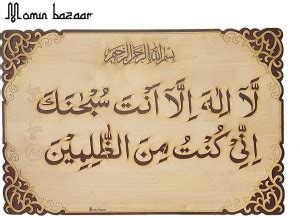 Momin bazaar
بسم الله الرحمن الرحيم
لَّا اِلٰهَ اِلَّا اَنْتَ سُبْحٰنَكَ
اِنِّىْ كُنْتُ مِنَ الظّٰلِمِيْنَ